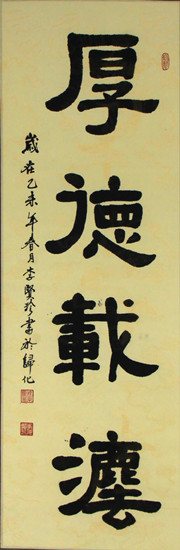 厚德載灋
歲在乙未年春月李賢珍書於歸化